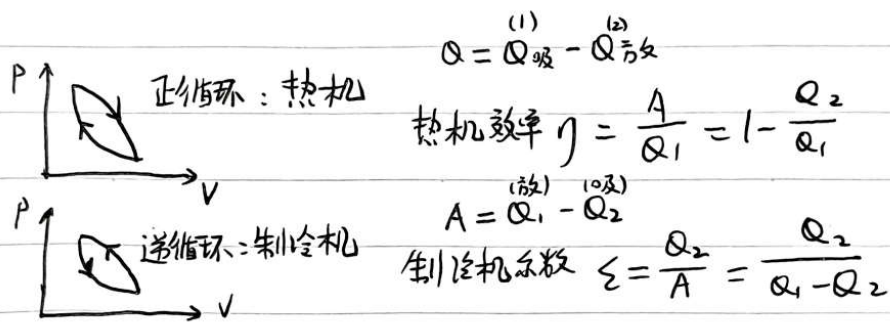 P
正循环：热机
V
Q = Q吸(1) - Q放(2)
热机效率 η = A/Q₁ = 1 - Q₂/Q₁
P
逆循环：制冷机
V
A = Q₁(放) - Q₂(吸)
制冷机系数 ε = Q₂/A = Q₂/(Q₁-Q₂)